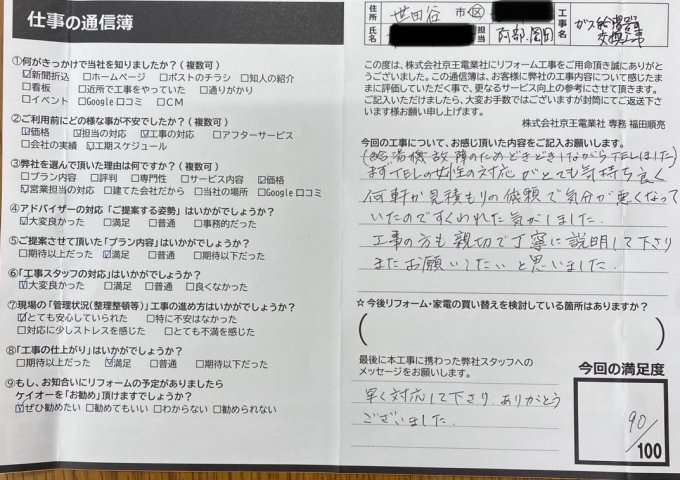 仕事の通信簿
住所 世田谷 市・区
氏名
担当 阿部・岡田
工事名 ガス給湯器交換工事
①何がきっかけで当社を知りましたか？（複数可）
☑新聞折込 □ホームページ □ポストのチラシ □知人の紹介
□看板 □近所で工事をやっていた □通りがかり
□イベント □Google口コミ □CM
②ご利用前にどの様な事が不安でしたか？（複数可）
☑価格 ☑担当の対応 ☑工事の対応 □アフターサービス
□会社の実績 ☑工期スケジュール
③弊社を選んで頂いた理由は何ですか？（複数可）
□プラン内容 □評判 □専門性 □サービス内容 ☑価格
☑営業担当の対応 □建てた会社だから □当社の場所 □Google口コミ
④アドバイザーの対応「ご提案する姿勢」はいかがでしょうか？
☑大変良かった □満足 □普通 □事務的だった
⑤ご提案させて頂いた「プラン内容」はいかがでしょうか？
□期待以上だった ☑満足 □普通 □期待以下だった
⑥「工事スタッフの対応」はいかがでしょうか？
☑大変良かった □満足 □普通 □良くなかった
⑦現場の「管理状況(整理整頓等)」工事の進め方はいかがでしょうか？
☑とても安心していられた □特に不安はなかった
□対応に少しストレスを感じた □とても不満を感じた
⑧「工事の仕上がり」はいかがでしょうか？
□期待以上だった ☑満足 □普通 □期待以下だった
⑨もし、お知合いにリフォームの予定がありましたら
ケイオーを「お勧め」頂けますでしょうか？
☑ぜひ勧めたい □勧めてもいい □わからない □勧められない
この度は、株式会社京王電業社にリフォーム工事をご用命頂き誠にありが
とうございました。この通信簿は、お客様に弊社の工事内容について感じたま
まに評価していただく事で、更なるサービス向上の参考にさせて頂きます。
ご記入いただけましたら、大変お手数ではございますが封筒にてご返送下さ
います様お願い申し上げます。
株式会社京王電業社 専務 福田順亮
今回の工事について、お感じ頂いた内容をご記入お願いします。
(給湯機故障のためどきどきしながらTELしました)
まずTELの女性の対応がとても気持ち良く
何軒か見積もりの依頼で気分が悪くなって
いたのですくわれた気がしました。
工事の方も親切で丁寧に説明して下さり
またお願いしたいと思いました。
☆今後リフォーム・家電の買い替えを検討している箇所はありますか？
最後に本工事に携わった弊社スタッフへの
メッセージをお願いします。
早く対応して下さり、ありがとう
ございました。
今回の満足度
90/100